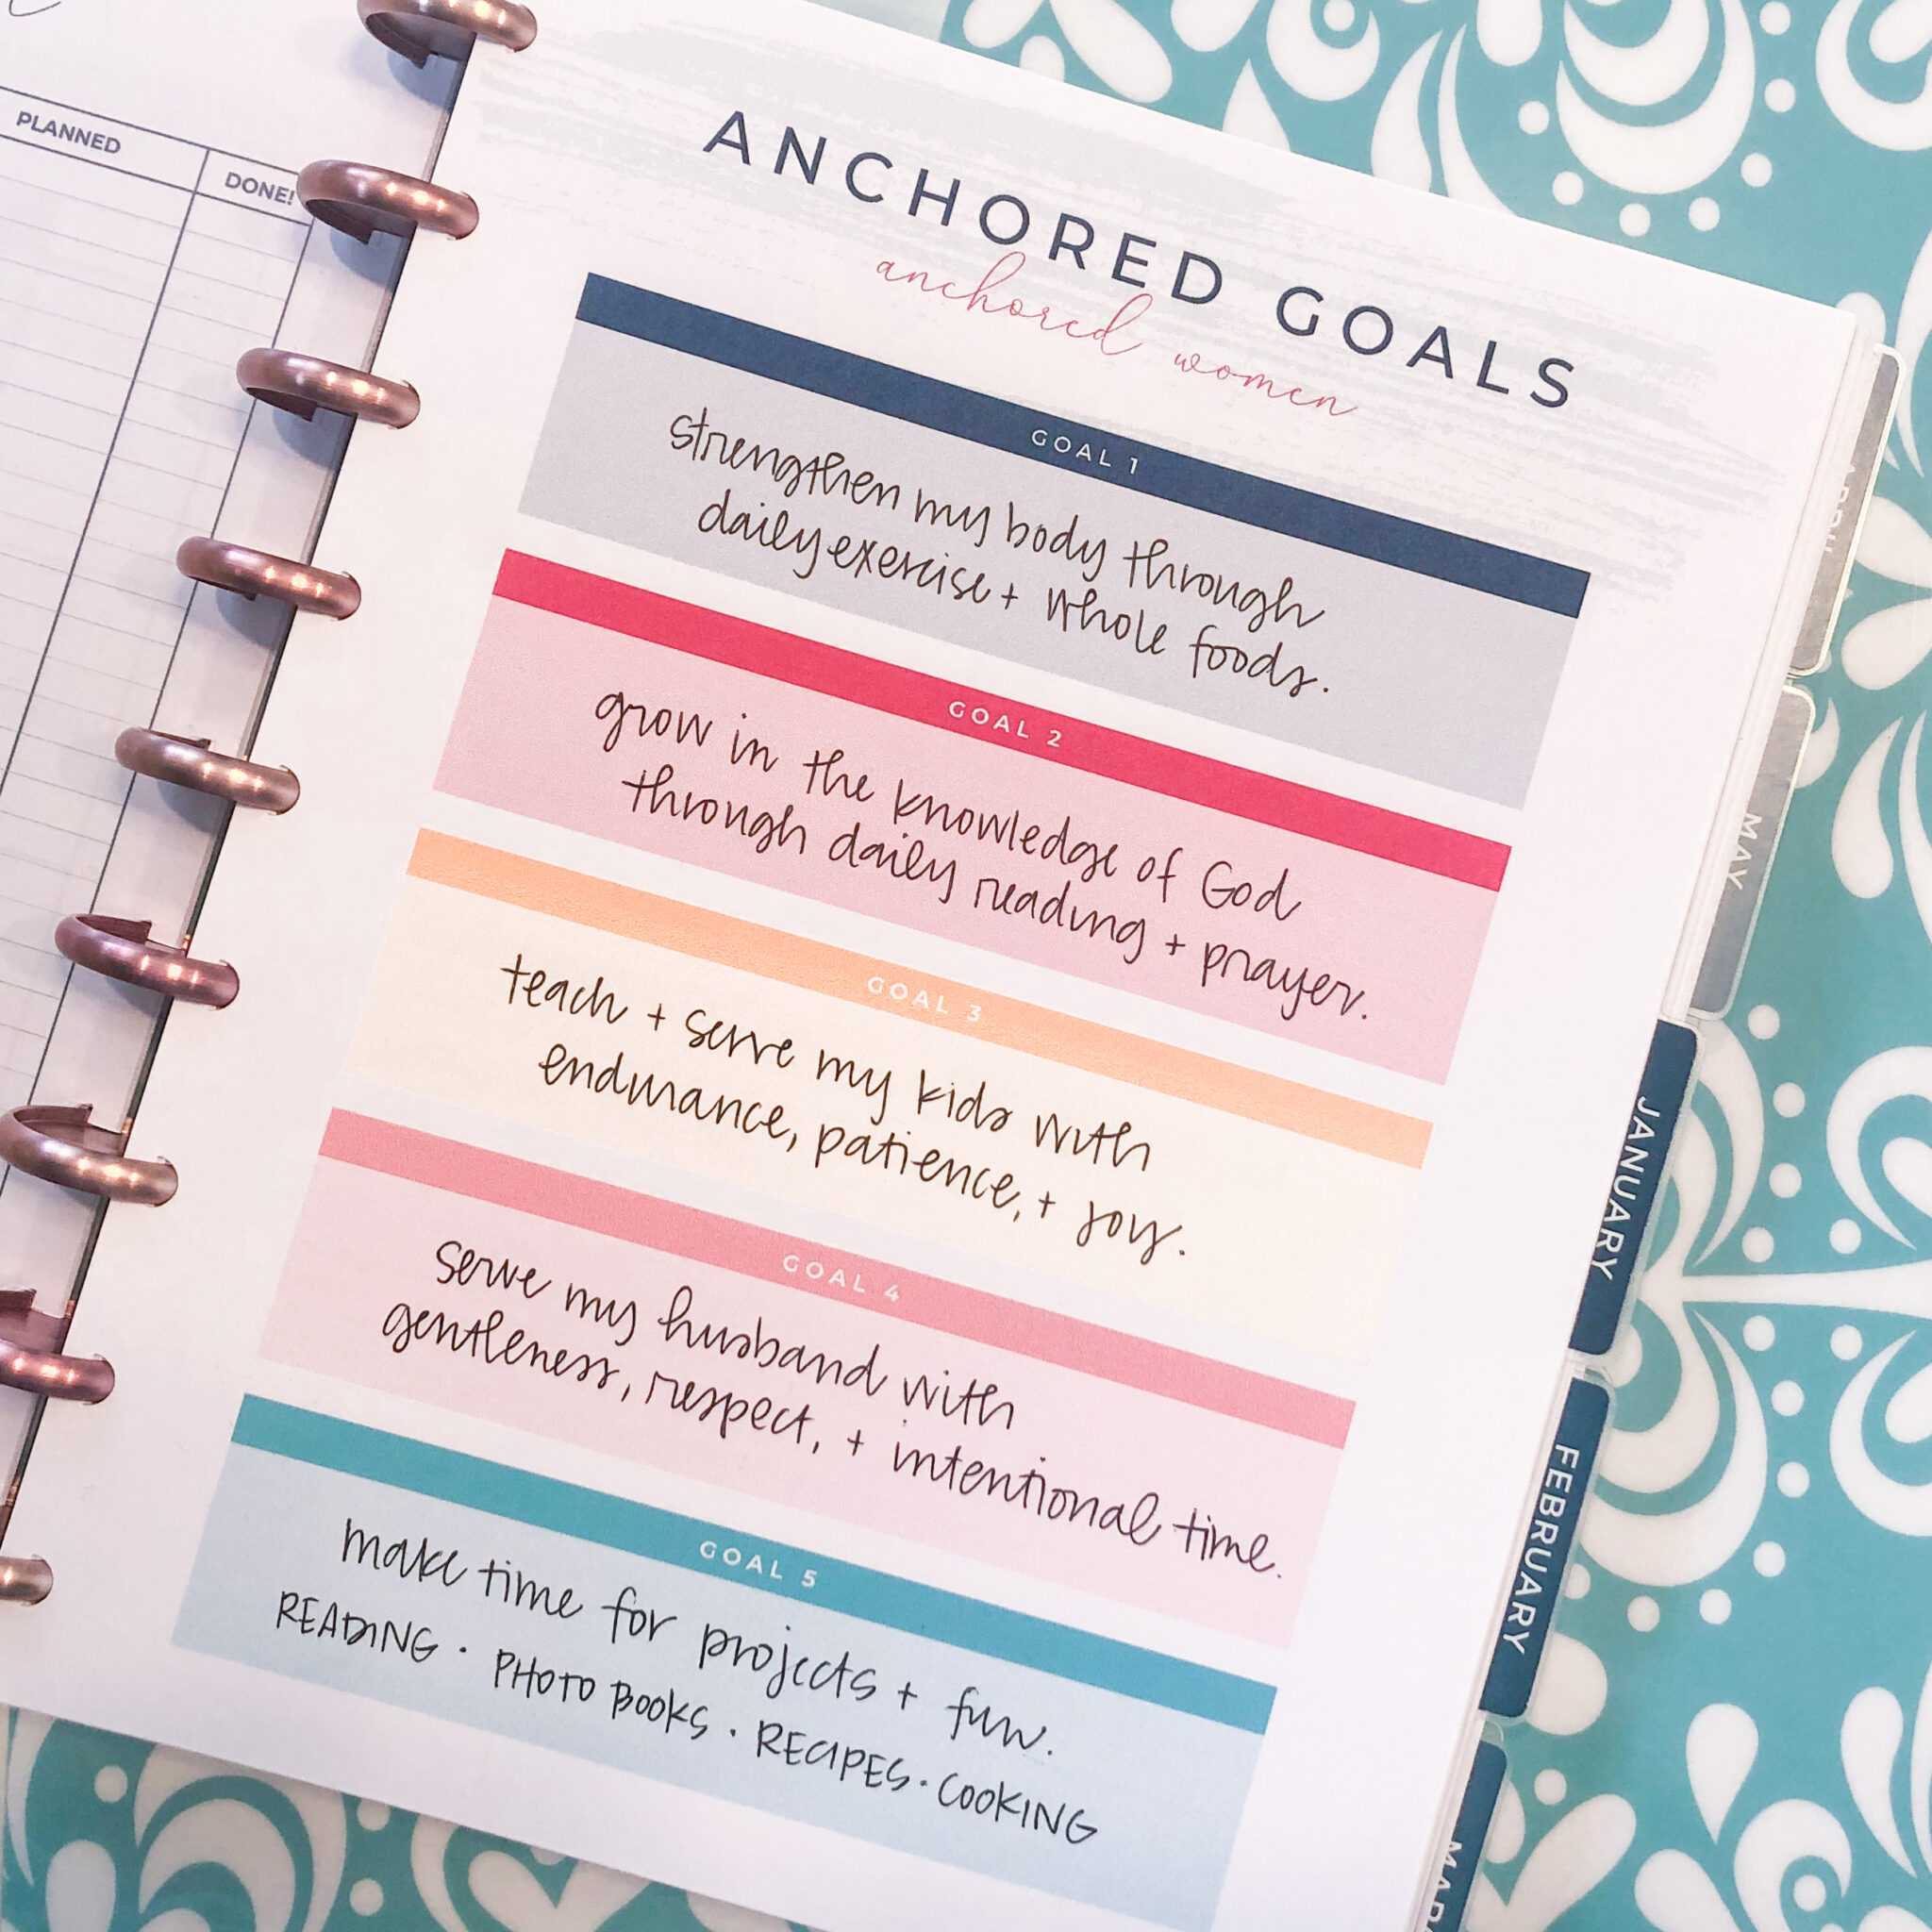 PLANNED
DONE!
ANCHORED GOALS
anchored women
GOAL 1
strengthen my body through
daily exercise + whole foods.
GOAL 2
grow in the knowledge of God
through daily reading + prayer.
GOAL 3
teach + serve my kids with
endurance, patience, + joy.
GOAL 4
serve my husband with
gentleness, respect, + intentional time.
GOAL 5
make time for projects + fun.
READING · PHOTO BOOKS · RECIPES · COOKING
APRIL
MAY
JANUARY
FEBRUARY